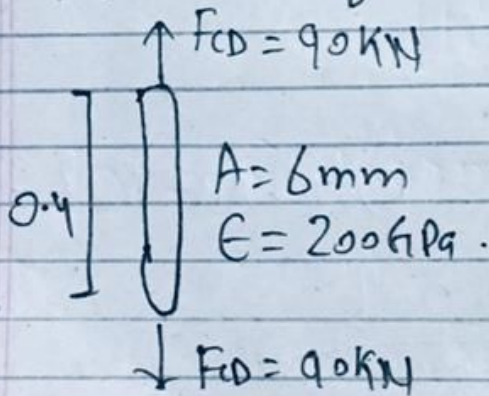 FCD = 90KN
0.4
A = 6mm
E = 200GPa.
FCD = 90KN